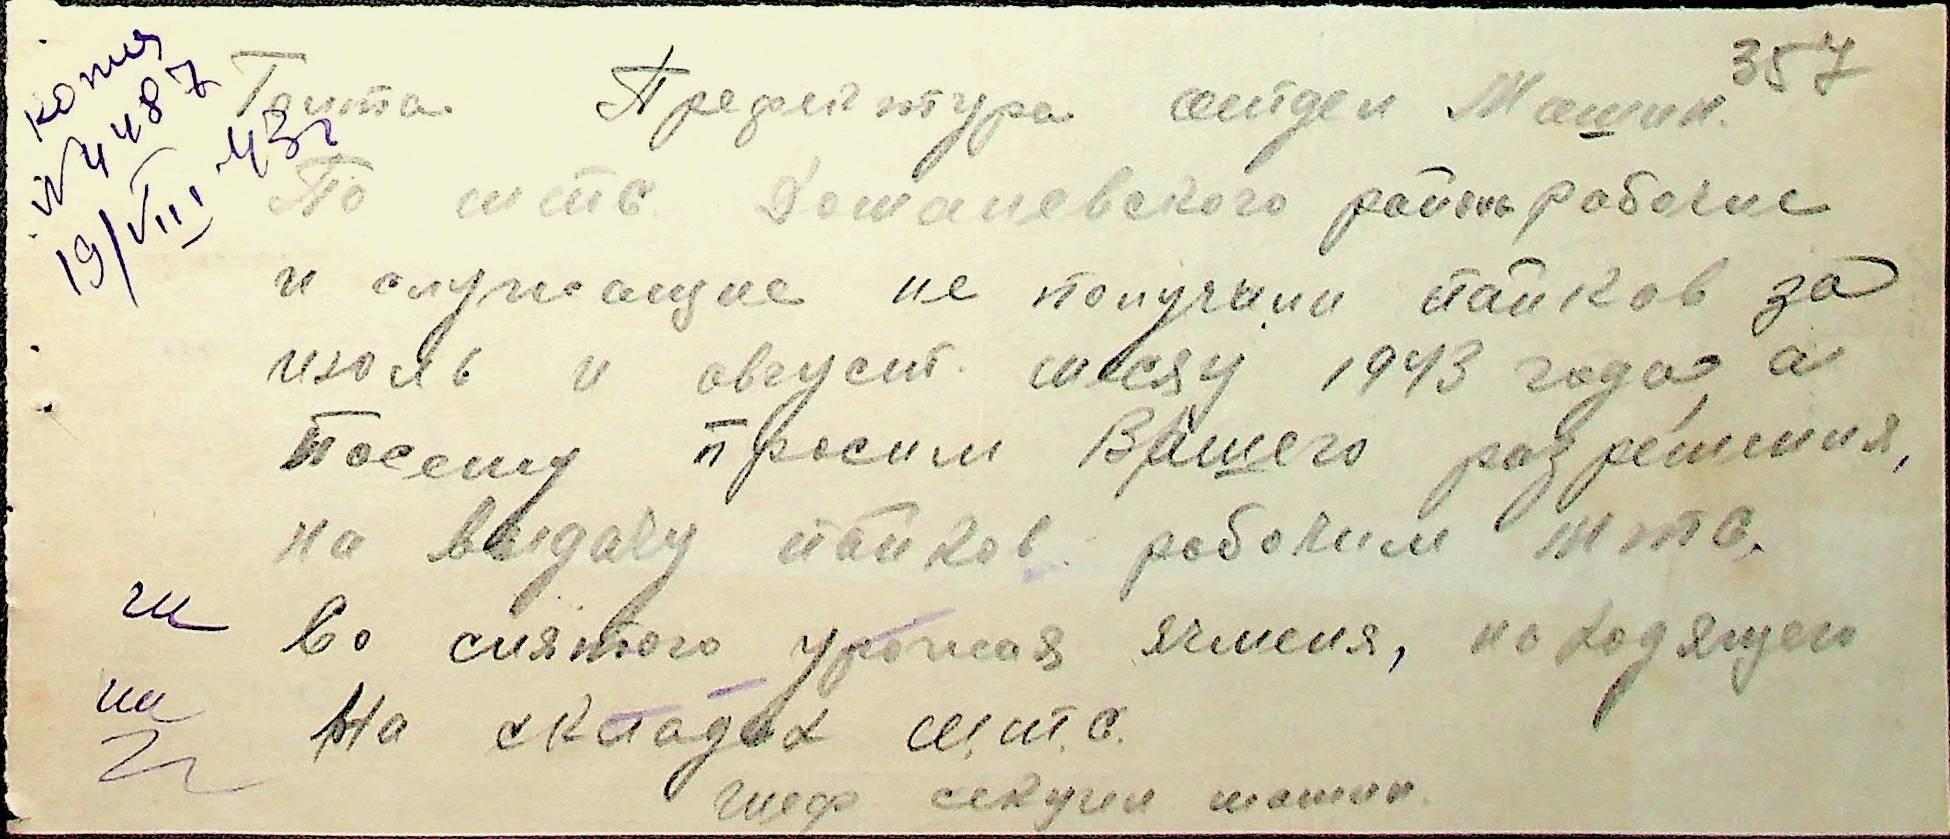 копия
№ 4487
19/VIII 43г
357
Голта Префектура отдел Машин.
По мтс. Доманевского района рабочие
и служащие не получили пайков за
июль и август месяц 1943 года, а
посему просим Вашего разрешения,
на выдачу пайков рабочим мтс.
со снятого урожая ячменя, находящего
на складах м.т.с.
шеф секции машин.